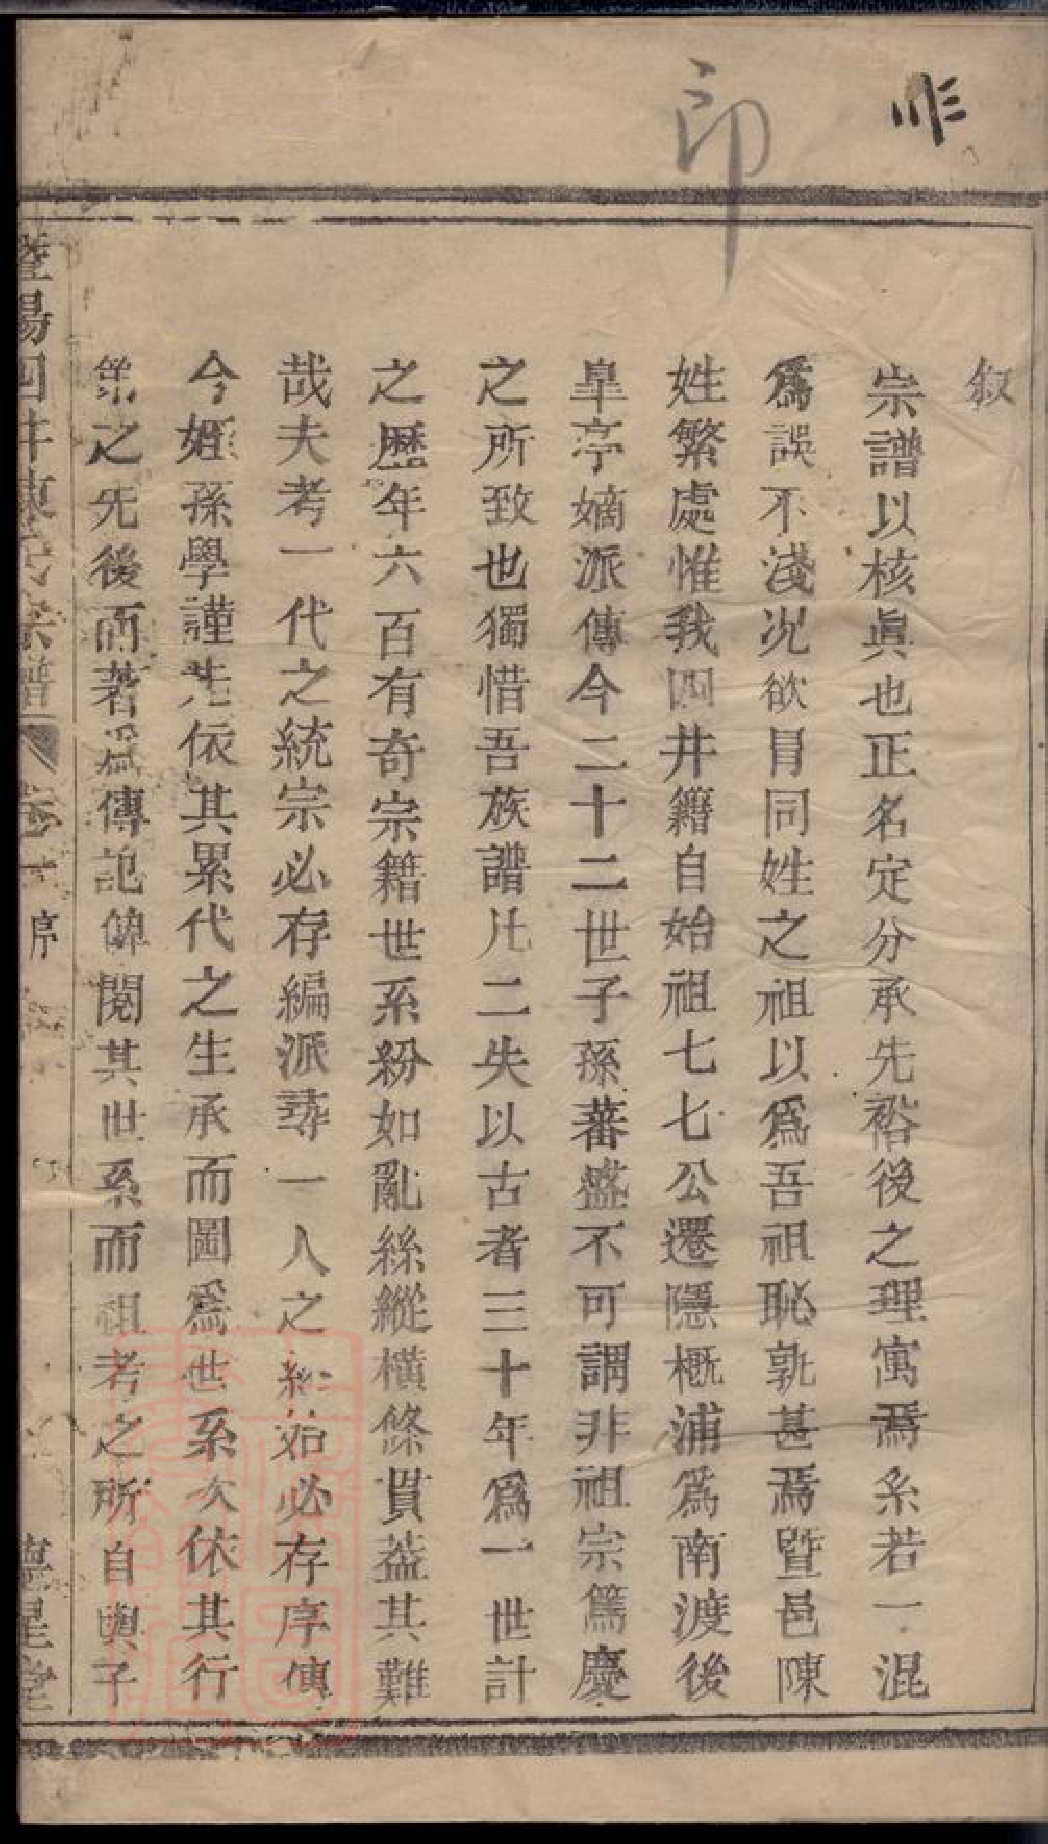 印
叙
宗譜以核眞也正名定分承先裕後之理寓焉系若一混
爲誤不淺况欲冒同姓之祖以爲吾祖恥孰甚焉暨邑陳
姓繁處惟我四井籍自始祖七七公遷隱概浦爲南渡後
皐亭嫡派傳今二十二世子孫蕃盛不可謂非祖宗篤慶
之所致也獨惜吾族譜凡二失以古者三十年爲一世計
之歷年六百有奇宗籍世系紛如亂絲縱橫絛貫葢其難
哉夫考一代之統宗必存編派尋一人之終始必存序傳
今姪孫學謹先依其累代之生承而圖爲世系次依其行
第之先後而著爲傳記俾閱其世系而祖考之所自與子
暨陽四井陳氏宗譜
卷一序
惪星堂